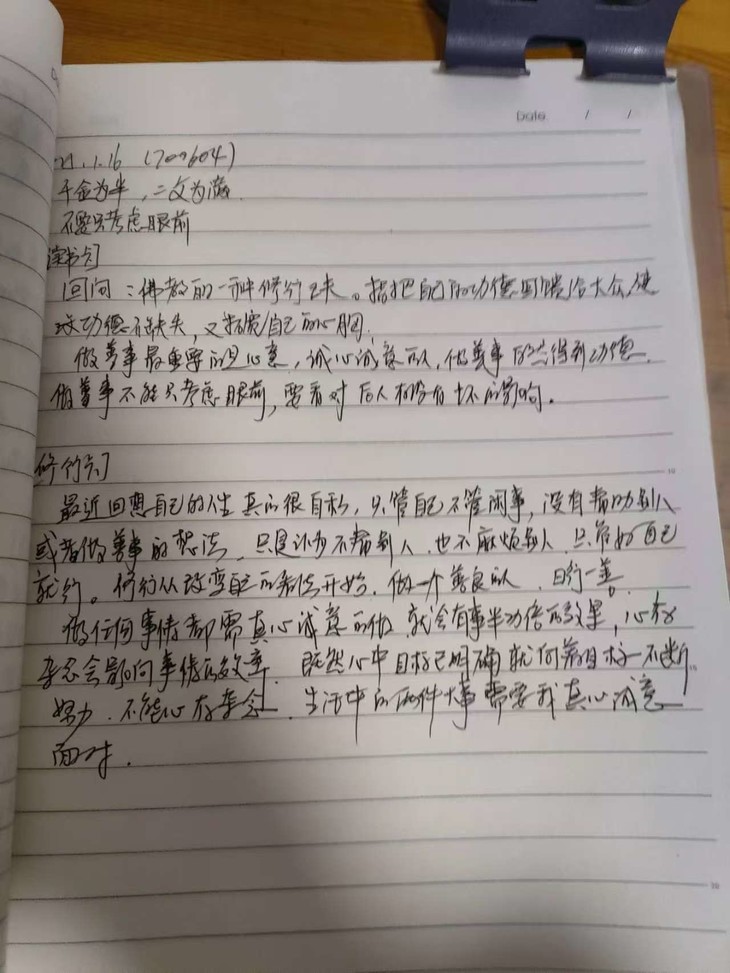 Date / /
21.1.16 (709604)
千金为半,二文为满.
不要只考虑眼前
读书点]
回向:佛教的一种修行 。指把自己的功德回赠给大众,使
功德不缺失,又拓宽自己的心胸.
做善事最重要的是心意,诚心诚意的人,做善事自然得到功德.
做善事不能只考虑眼前,要看对后人有没有坏的影响。
修行点]
最近回想自己的人生真的很自私,只管自己不管闲事,没有帮助别人
或者做善事的想法,只是认为不帮别人,也不麻烦别人,只管好自己
就行。修行从改变自己的看法开始.做一个善良的人,日行一善。
做任何事情都需真心诚意的做,就会有事半功倍的效果,心存
杂念会影响事情的效率.既然心中目标已明确就向着目标不断
努力.不能心存杂念.生活中的两件大事需要我真心诚意
面对.